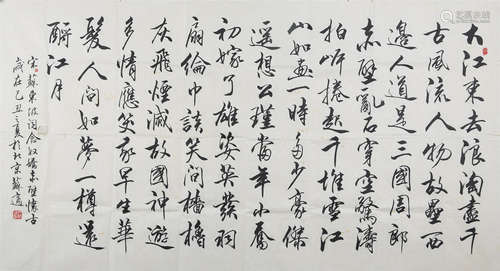 大江東去浪淘盡千
古風流人物故壘西
邊人道是三國周郎
赤壁亂石穿空驚濤
拍岸捲起千堆雪江
山如畫一時多少豪傑
遙想公瑾當年小喬
初嫁了雄姿英發羽
扇綸巾談笑間檣櫓
灰飛煙滅故國神遊
多情應笑我早生華
髮人間如夢一樽還
酹江月
宋蘇東坡詞念奴嬌赤壁懷古
歲在己丑之夏於北京蘇適